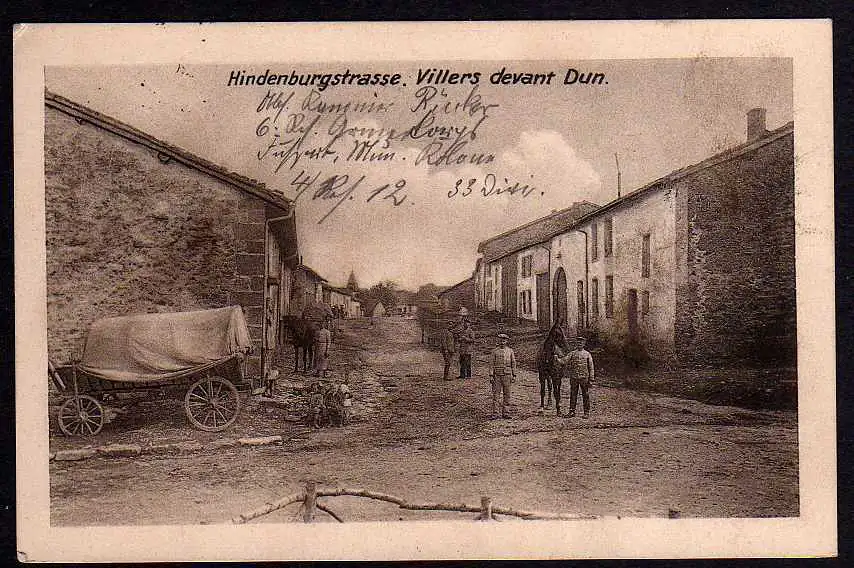 Hindenburgstrasse. Villers devant Dun.
Abs. Kanonier Rücker
6. Rs. Armee Korps
Fussart. Mun. Kolone
4/Rs. 12. 33 Divi.